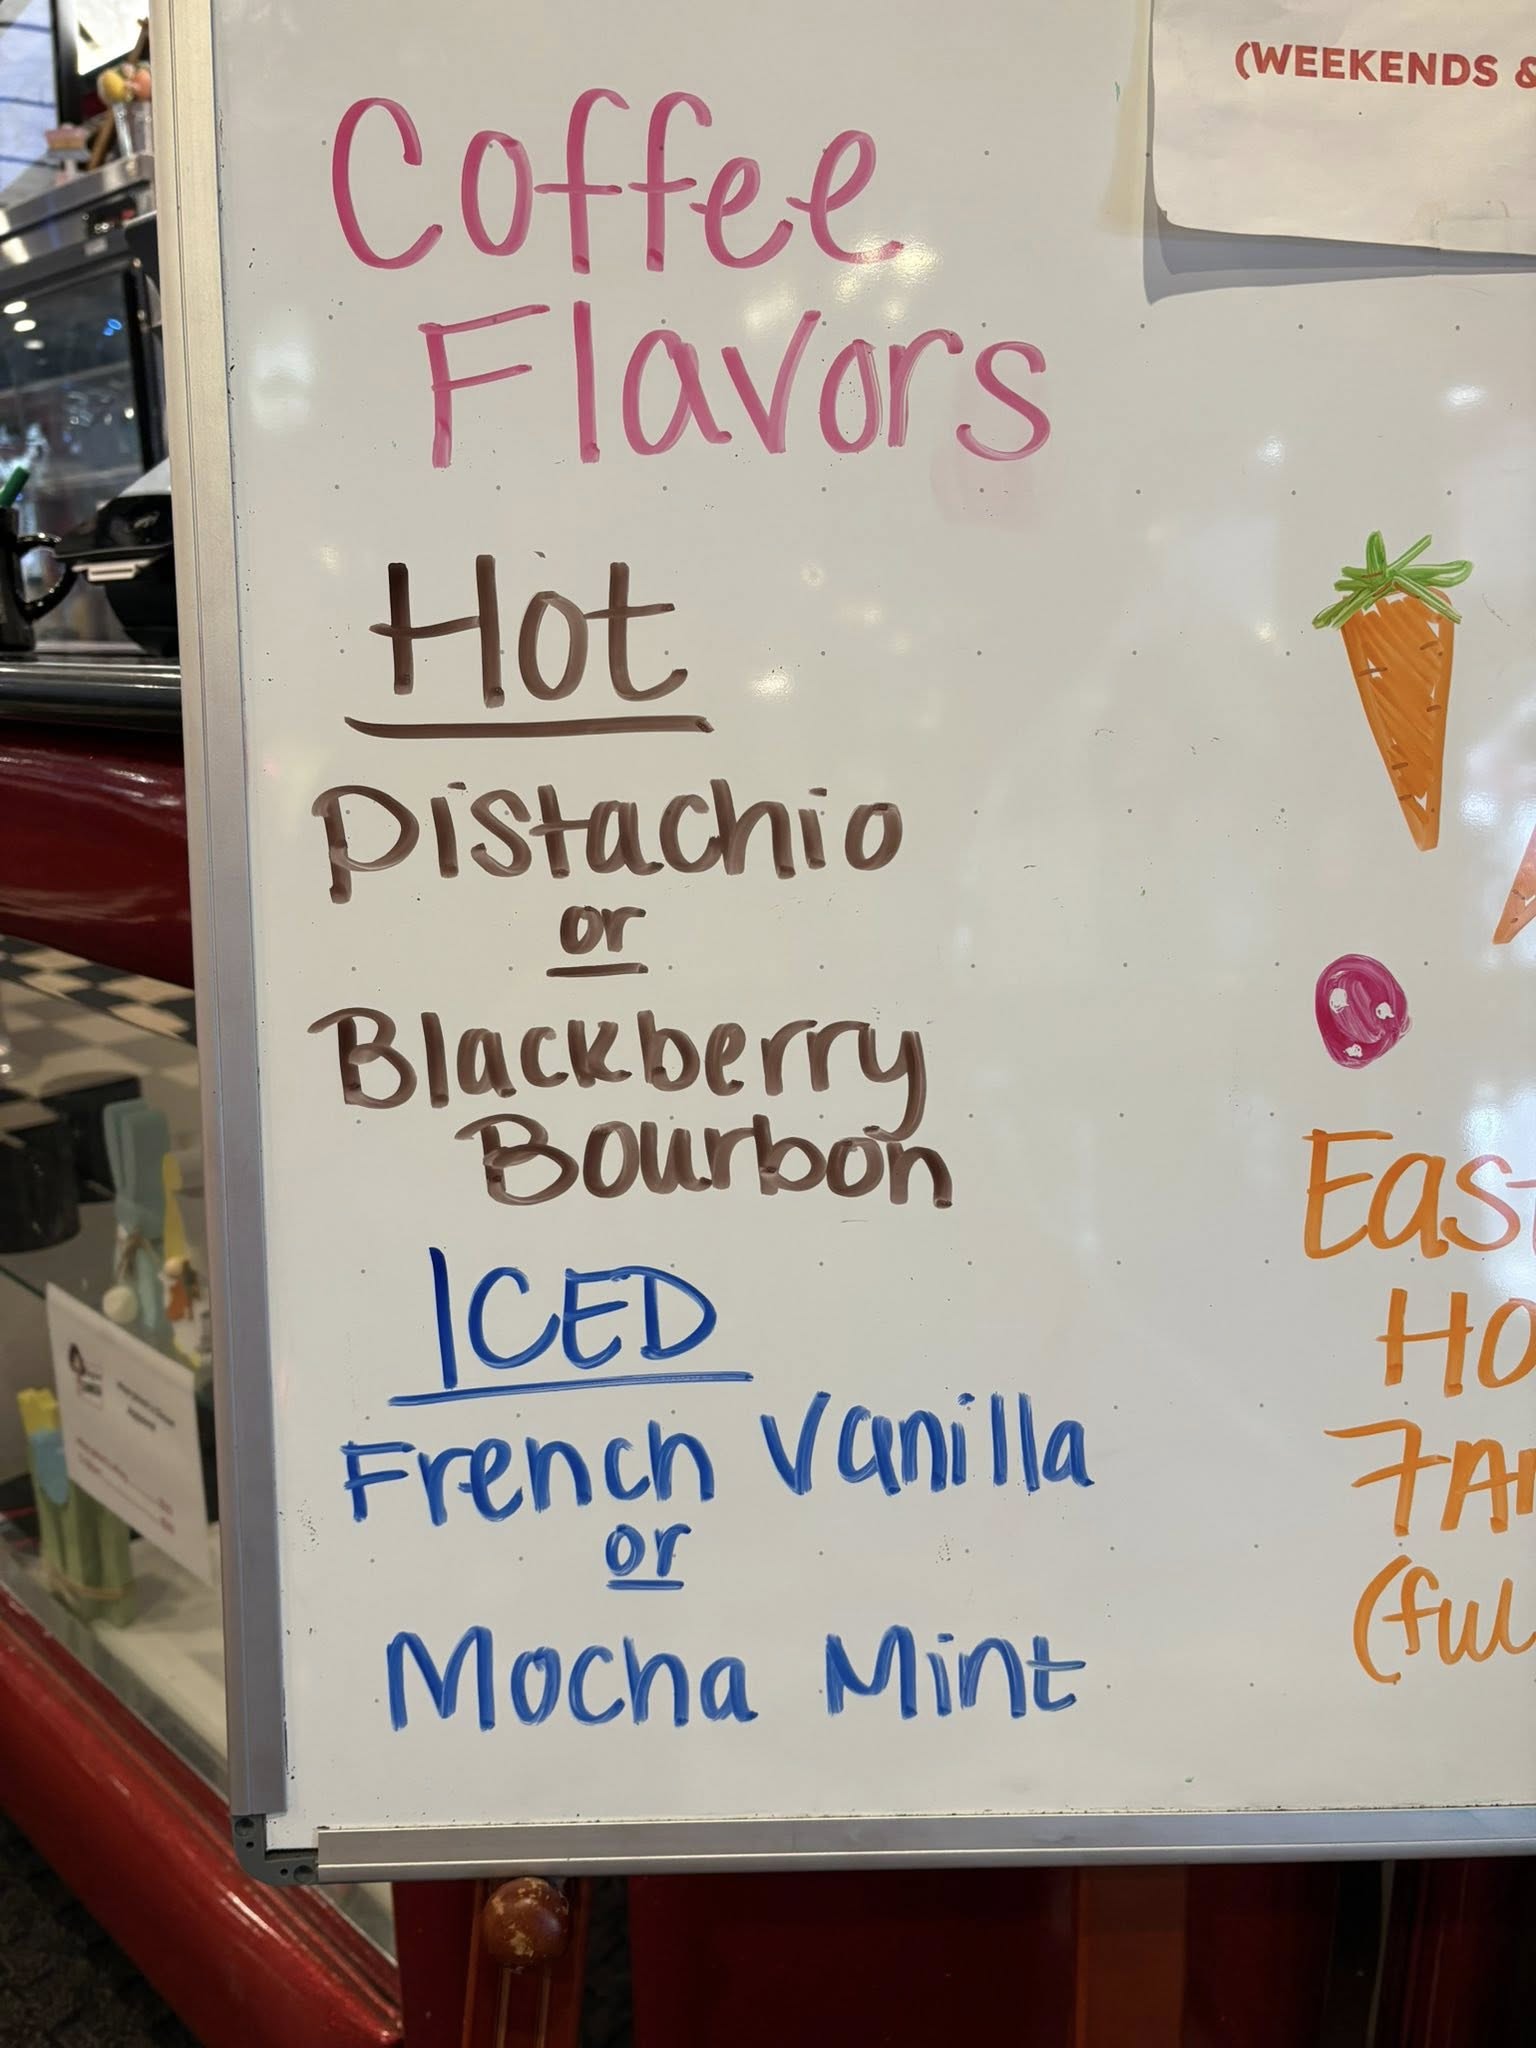 (WEEKENDS &
Coffee
Flavors
Hot
Pistachio
or
Blackberry
Bourbon
ICED
French Vanilla
or
Mocha Mint
East
HO
7A
(ful